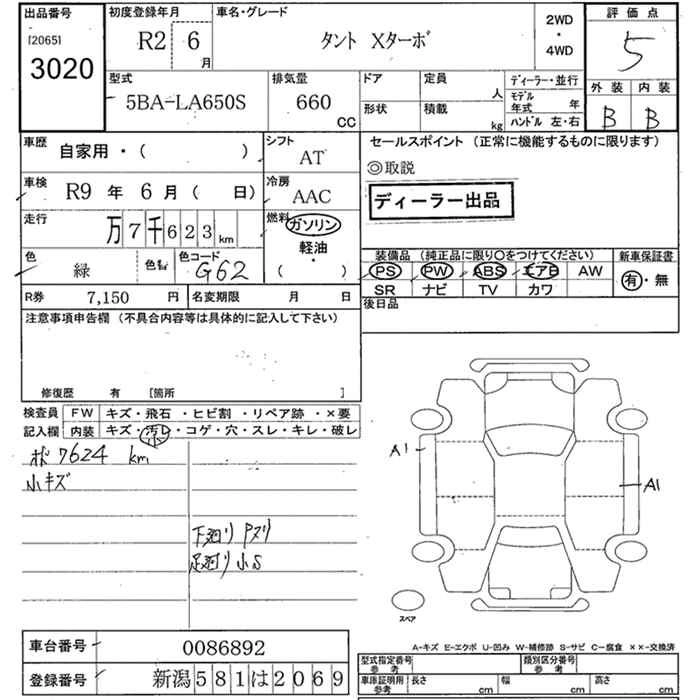 出品番号
[2065]
3020
初度登録年月
R2 6
月
車名・グレード
タント Xターボ
2WD
・
4WD
評価点
5
外装 内装
B B
型式
5BA-LA650S
排気量
660
CC
ドア
形状
定員
人
積載
kg
ディーラー・並行
モデル
年式 年
ハンドル 左・右
車歴
自家用・( )
シフト
AT
車検
R9 年 6 月 ( 日)
冷房
AAC
走行
万 7 千 6 2 3 km
燃料
ガソリン
軽油
・
( )
色
緑
色替
色コード
G62
R券 7,150 円
名変期限 月 日
セールスポイント (正常に機能するものに限ります)
◎取説
ディーラー出品
装備品 (純正品に限り〇をつけてください)
PS PW ABS エアB AW
SR ナビ TV カワ
新車保証書
有・無
後日品
注意事項申告欄 (不具合内容等は具体的に記入して下さい)
修復歴 有 [箇所 ]
検査員
記入欄
FW キズ・飛石・ヒビ割・リペア跡・×要
内装 キズ・汚レ・コゲ・穴・スレ・キレ・破レ
ポ 7624 km
小キズ
下廻り Pヌリ
足廻り 小S
A1
A1
スペア
A-キズ E-エクボ U-凹み W-補修跡 S-サビ C-腐食 ××-交換済
車台番号 0086892
登録番号 新潟581は2069
型式指定番号
参考
類別区分番号
参考
車庫証明用
参考
長さ cm 幅 cm 高さ cm